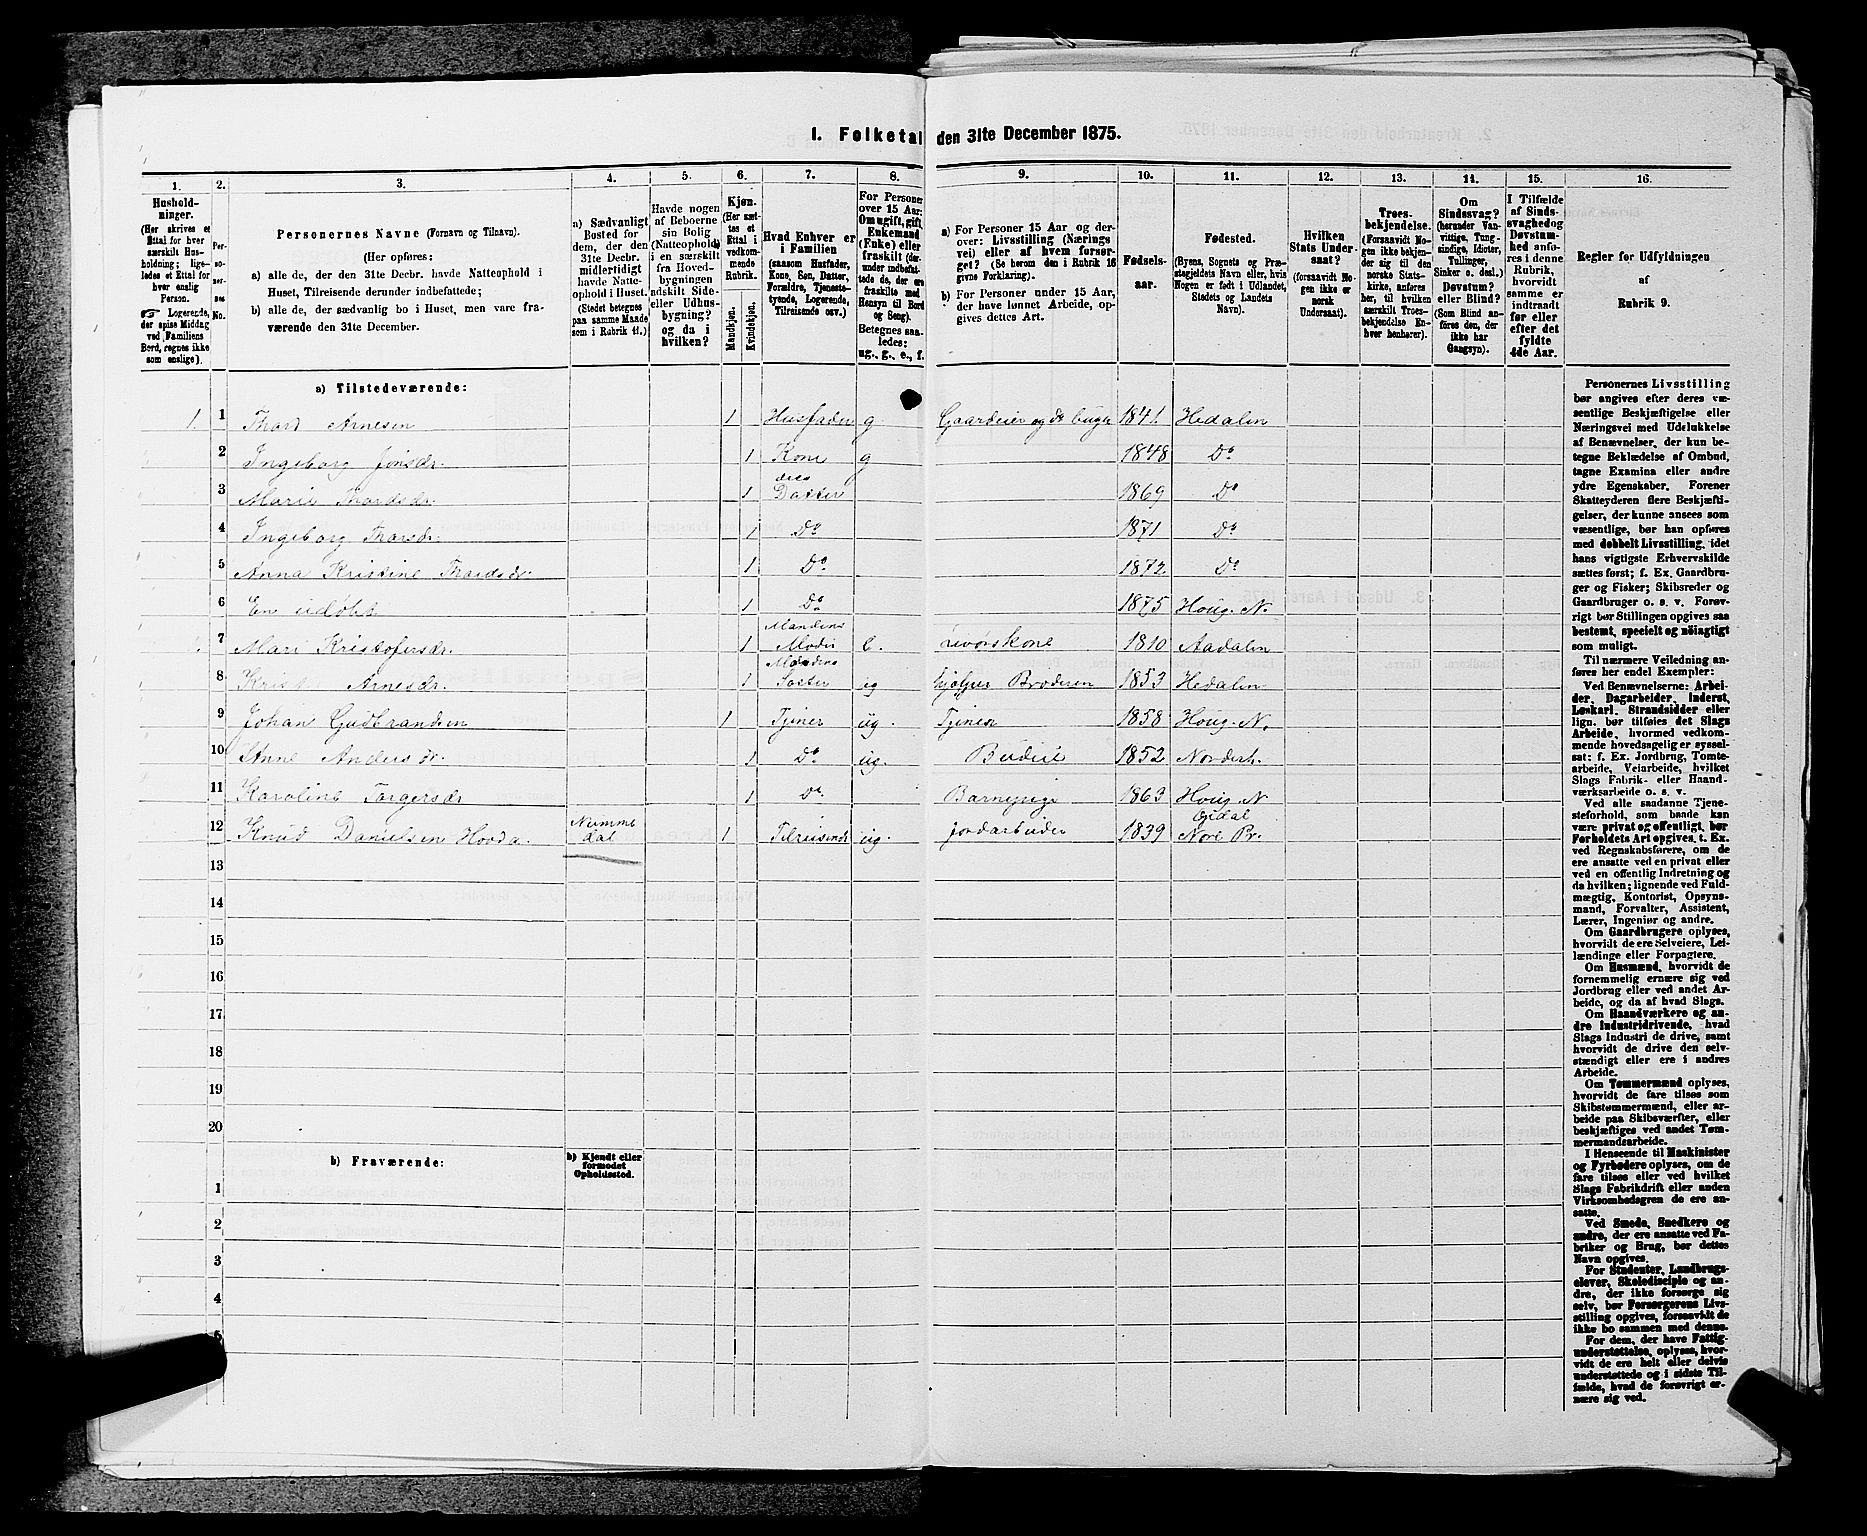 1. Folketal den 31te December 1875.
1. 2. 3. 4. 5. 6. 7. 8. 9. 10. 11. 12. 13. 14. 15. 16.
Hushold-
ninger.
(Her skrives et
Ettal for hver
særskilt Hus-
holdning; lige-
ledes et Ettal for
hver enslig
Person.
Logerende,
der spise Middag
ved Familiens
Bord, regnes ikke
som enslige).
Per-
so-
ner-
nes
No.
Personernes Navne (Fornavn og Tilnavn).
(Her opføres:
a) alle de, der den 31te Decbr. havde Natteophold i
Huset, Tilreisende derunder indbefattede;
b) alle de, der sædvanlig bo i Huset, men vare fra-
værende den 31te December.
a) Sædvanligt
Bosted for
dem, der den
31te Decbr.
midlertidigt
havde Natte-
ophold i Huset.
(Stedet betegnes
paa samme Maade
som i Rubrik 11.)
Havde nogen
af Beboerne
sin Bolig
(Natteophold)
i en særskilt
fra Hoved-
bygningen
adskilt Side-
eller Udhus-
bygning?
og da i
hvilken?
Kjøn.
(Her sæt-
tes et
Ettal i
vedkom-
mende
Rubrik.
Mandkjøn.
Kvindekjøn.
Hvad Enhver er
i Familien
(saasom Husfader,
Kone, Søn, Datter,
Forældre, Tjeneste-
tyende, Logerende,
Tilreisende osv.)
For Personer
over 15 Aar:
Om ugift, gift,
Enkemand
(Enke) eller
fraskilt (der-
under indbefat-
tede de, der ere
fraskilte med
Hensyn til Bord
og Seng).
Betegnes saa-
ledes:
ug., g., e., f.
a) For Personer 15 Aar og der-
over: Livsstilling (Nærings-
vei) eller af hvem forsør-
get? (Se herom den i Rubrik 16
givne Forklaring).
b) For Personer under 15 Aar,
der have lønnet Arbeide, op-
gives dettes Art.
Fødsels-
aar.
Fødested.
(Byens, Sognets og Præ-
stegjeldets Navn eller, hvis
Nogen er født i Udlandet,
Stedets og Landets
Navn).
Hvilken
Stats Under-
saat?
(forsaavidt No-
gen ikke er
norsk
Undersaat).
Troes-
bekjendelse.
(Forsaavidt No-
gen ikke bekjen-
der sig til den
norske Stats-
kirke, anføres
her, til hvilken
særskilt Troes-
bekjendelse En-
hver henhører).
Om
Sindssvag?
(herunder Van-
vittige, Tung-
sindige, Idioter,
Tullinger,
Sinker o. desl.)
Døvstum?
eller Blind?
(Som Blind an-
føres den, der
ikke har
Gangsyn).
I Tilfælde
af Sinds-
svaghed og
Døvstum-
hed anfø-
res i denne
Rubrik,
hvorvidt
samme er
indtraadt
før eller
efter det
fyldte
4de Aar.
Regler for Udfyldningen
af
Rubrik 9.
a) Tilstedeværende:
1. 1 Thord Arnesen 1 Husfader g Gaardeier og 1841 Hedalen
2 Ingeborg Jonsdr. 1 Kone g 1848 Do
3 Marie Thordsdr. 1 deres Datter 1869 Do
4 Ingeborg Thorsdr. 1 Do 1871 Do
5 Anna Kristine Thordsdr. 1 Do 1872 Do
6 En udøbt 1 Do 1875 Houg. N.
7 Mari Kristofersdr. 1 Mandens Moder e. 1810 Aadalen
8 Arnesdr. 1 Mandens Søster ug hjælper Broderen 1853 Hedalen
9 Johan Gudbrandsen 1 Tjener ug. Tjener 1858 Houg. N.
10 Anne Andersdr. 1 Do ug. Budeie 1852 Norderh.
11 Karoline Torgersdr 1 Do. Barnepige 1863 Houg. N
12 Knud Danielsen Hovda. Numme dal 1 Tilreisende ug. jordarbeider 1839 Nore Pr.
13
14
15
16
17
18
19
20
b) Fraværende: b) Kjendt eller
formodet
Opholdssted.
1
2
3
4
5
Personernes Livsstilling
bør angives efter deres væ-
sentlige Beskjæftigelse eller
Næringsvei med Udelukkelse
af Benævnelser, der kun be-
tegne Beklædelse af Ombud,
tagne Examina eller andre
ydre Egenskaber. Forener
Skatteyderen flere Beskjæfti-
gelser, der kunne ansees som
væsentlige, bør han opføres
med dobbelt Livsstilling, idet
hans vigtigste Erhvervskilde
sættes først; f. Ex. Gaardbru-
ger og Fisker; Skibsreder og
Gaardbruger o. s. v. Forøv-
rigt bør Stillingen opgives saa
bestemt, specielt og nöiagtigt
som muligt.
Til nærmere Veiledning an-
føres her endel Exempler:
Ved Benævnelserne: Arbei-
der, Dagarbeider, Inderst,
Løskarl, Strandsidder eller
lign. bør tilføies det Slags
Arbeide, hvormed vedkom-
mende hovedsagelig er syssel-
sat: f. Ex. Jordbrug, Tomte-
arbeide, Veiarbeide, hvilket
Slags Fabrik- eller Haand-
værksarbeide o. s. v.
Ved alle saadanne Tjene-
steforhold, som baade kan
være privat og offentligt, bør
Forholdets Art opgives, t. Ex.
ved Regnskabsførere, om de
ere ansatte ved en privat eller
ved en offentlig Indretning og
da hvilken; lignende ved Fuld-
mægtig, Kontorist, Opsyns-
mand, Forvalter, Assistent,
Lærer, Ingeniør og andre.
Om Gaardbrugere oplyses,
hvorvidt de ere Selveiere, Lei-
lændinge eller Forpagtere.
Om Husmænd, hvorvidt de
fornemmelig ernære sig ved
Jordbrug eller ved andet Ar-
beide, og da af hvad Slags.
Om Haandværkere og an-
dre industridrivende, hvad
Slags Industri de drive, samt
hvorvidt de drive den selv-
stændigt eller ere i andres
Arbeide.
Om Tømmermænd oplyses,
hvorvidt de fare tilsøs som
Skibstømmermænd, eller ar-
beide paa Skibsværfter, eller
beskjæftiges ved andet Tøm-
mermandsarbeide.
I Henseende til Maskinister
og Fyrbødere oplyses, om de
fare tilsøs eller ved hvilket
Slags Fabrikdrift eller anden
Virksomhedsgren de ere an-
satte.
Ved Smede, Snedkere og
andre, der ere ansatte ved Fa-
briker og Brug, bør dettes
Navn opgives.
For Studenter, Landbrugs-
elever, Skoledisciple og an-
dre, der ikke forsørge sig
selv, bør Forsørgerens Livs-
stilling opgives, forsaavidt de
ikke bo sammen med denne.
For dem, der have Fattig-
understøttelse, oplyses, hvor-
vidt de ere helt eller delvis
understøttede og i sidste Til-
fælde, hvad de forøvrigt er-
nære sig ved.